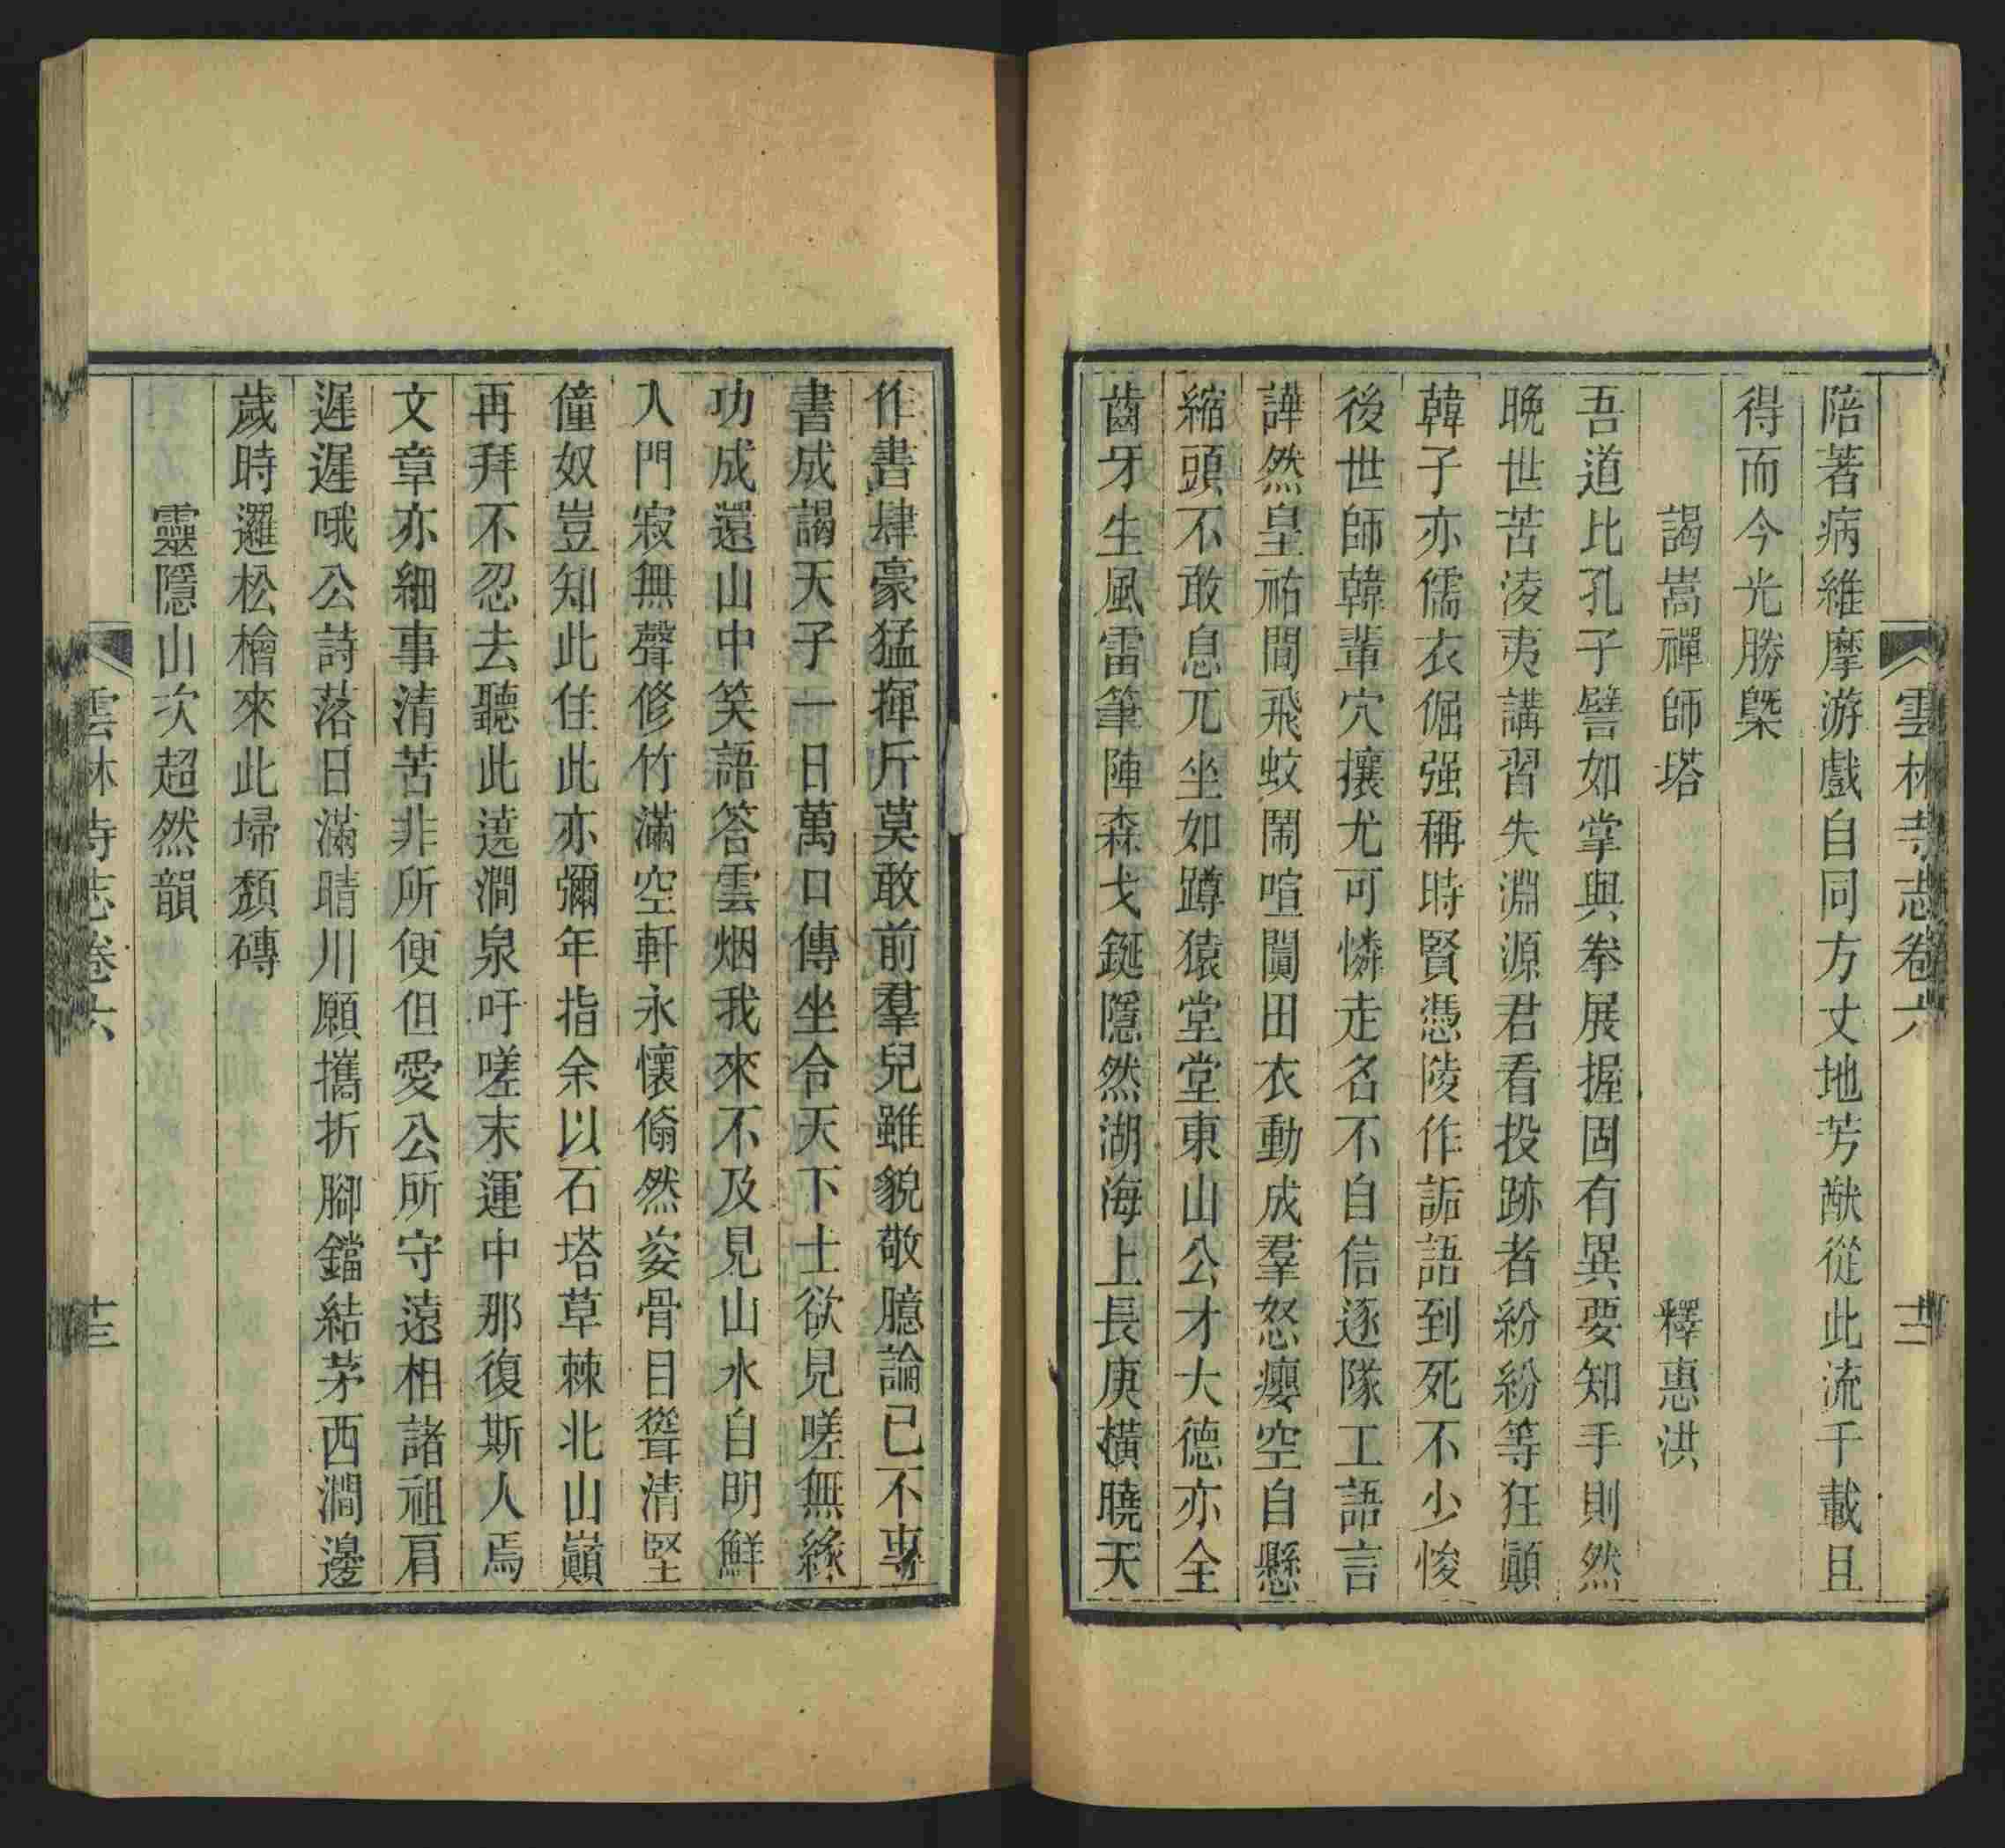 雲林寺志卷六
十二
陪著病維摩游戲自同方丈地芳猷從此流千載且
得而今光勝槩
謁嵩禪師塔　釋惠洪
吾道比孔子譬如掌與拳展握固有異要知手則然
晚世苦淩夷講習失淵源君看投跡者紛紛等狂顚
韓子亦儒衣倔强稱時賢憑陵作詬語到死不少悛
後世師韓輩穴攘尤可憐走名不自信逐隊工語言
譁然皇祐間飛蚊鬧喧闐田衣動成羣怒癭空自懸
縮頭不敢息兀坐如蹲猿堂堂東山公才大德亦全
齒牙生風雷筆陣森戈鋋隱然湖海上長庚橫曉天
作書肆豪猛揮斤莫敢前羣兒雖貌敬臆論已不專
書成謁天子一日萬口傳坐令天下士欲見嗟無緣
功成還山中笑語答雲烟我來不及見山水自明鮮
入門寂無聲修竹滿空軒永懷翛然姿骨目聳清堅
僮奴豈知此住此亦彌年指余以石塔草棘北山巔
再拜不忍去聽此遶澗泉吁嗟末運中那復斯人焉
文章亦細事清苦非所便但愛公所守遠相諸祖肩
遲遲哦公詩落日滿晴川願攜折腳鐺結茅西澗邊
歲時邏松檜來此埽頹磚
靈隱山次超然韻
雲林寺志卷六
十三